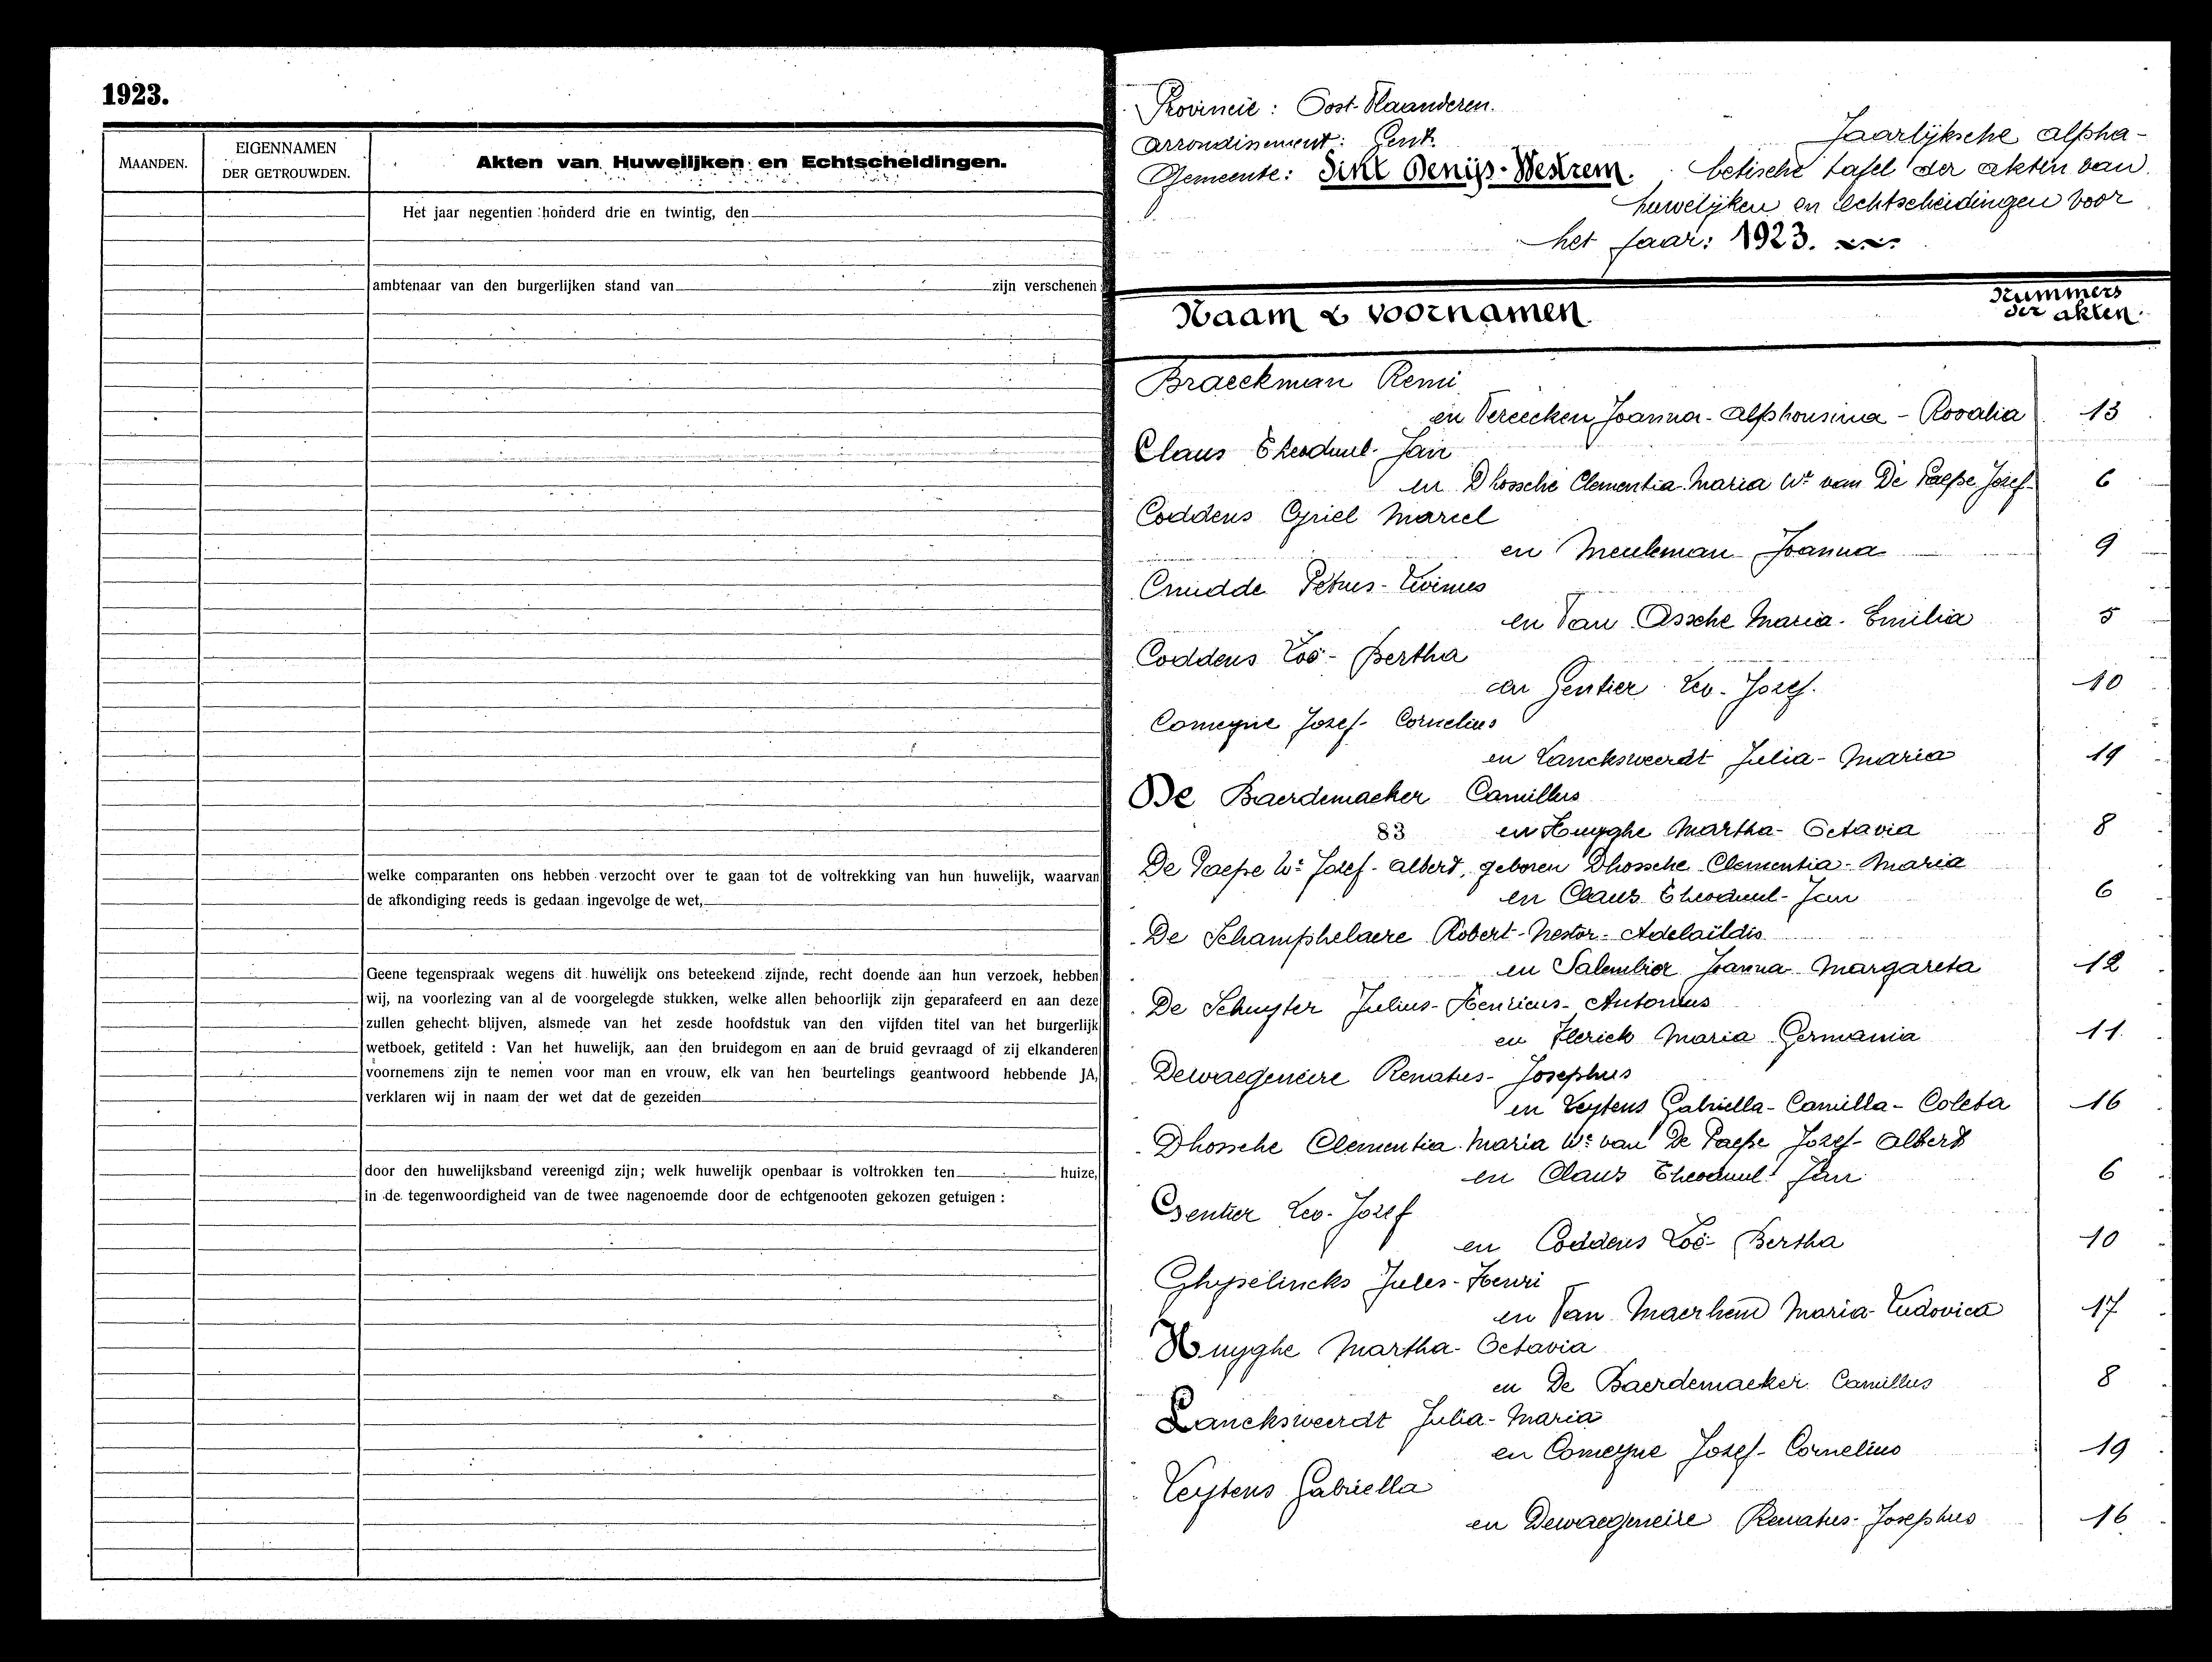 1923.
MAANDEN.
EIGENNAMEN
DER GETROUWDEN.
Akten van Huwelijken en Echtscheidingen.
Het jaar negentien honderd drie en twintig, den
ambtenaar van den burgerlijken stand van zijn verschenen
welke comparanten ons hebben verzocht over te gaan tot de voltrekking van hun huwelijk, waarvan
de afkondiging reeds is gedaan ingevolge de wet,
Geene tegenspraak wegens dit huwelijk ons beteekend zijnde, recht doende aan hun verzoek, hebben
wij, na voorlezing van al de voorgelegde stukken, welke allen behoorlijk zijn geparafeerd en aan deze
zullen gehecht blijven, alsmede van het zesde hoofdstuk van den vijfden titel van het burgerlijk
wetboek, getiteld : Van het huwelijk, aan den bruidegom en aan de bruid gevraagd of zij elkanderen
voornemens zijn te nemen voor man en vrouw, elk van hen beurtelings geantwoord hebbende JA,
verklaren wij in naam der wet dat de gezeiden
door den huwelijksband vereenigd zijn; welk huwelijk openbaar is voltrokken ten huize,
in de tegenwoordigheid van de twee nagenoemde door de echtgenooten gekozen getuigen :
Provincie : Oost-Vlaanderen.
Arrondissement : Gent.
Gemeente : Sint Denijs-Westrem.
Jaarlijksche alpha-
betische tafel der akten van
huwelijken en echtscheidingen voor
het jaar : 1923.
Naam & voornamen.
Nummers
der akten.
Braeckman Remi
en Vereecken Joanna-Alphonsina-Rosalia 13
Claus Theoduul-Jan
en Dhossche Clementia-Maria We van De Paepe Jozef 6
Coddens Cyriel Marcel
en Meuleman Joanna 9
Cnudde Petrus-Livinus
en Van Assche Maria-Emilia 5
Coddens Zoë-Bertha
en Gentier Leo-Jozef. 10
Comeyne Jozef-Cornelius
en Lancksweerdt Julia-Maria 19
De Baerdemaeker Camillus
83 en Huyghe Martha-Octavia 8
De Paepe We Jozef-Albert, geboren Dhossche Clementia-Maria
en Claus Theoduul-Jan 6
De Schamphelaere Robert-Nestor-Adelaïldis
en Salembier Joanna Margareta 12
De Schuyter Julius-Henricus-Antonius
en Flerick Maria Germania 11
Dewaegeneire Renatus-Josephus
en Leytens Gabriella-Camilla-Coleta 16
Dhossche Clementia Maria We van De Paepe Jozef-Albert
en Claus Theoduul Jan 6
Gentier Leo-Jozef
en Coddens Zoë-Bertha 10
Ghyselincks Jules-Henri
en Van Maerhem Maria-Ludovica 17
Huyghe Martha-Octavia
en De Baerdemaeker Camillus 8
Lancksweerdt Julia-Maria
en Comeyne Jozef-Cornelius 19
Leytens Gabriella
en Dewaegeneire Renatus-Josephus 16